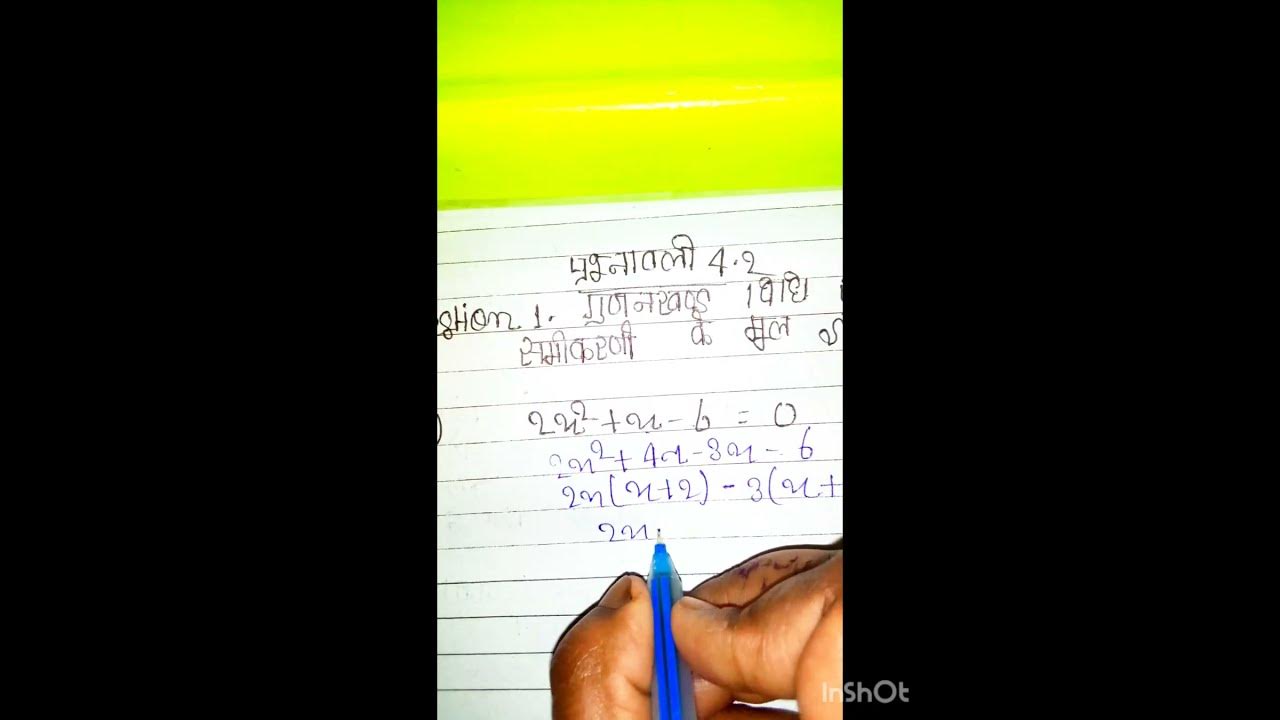 प्रश्नावली 4.2
stion. 1. गुणनखण्ड विधि
समीकरणी के मूल
2x² + x - 6 = 0
2x² + 4x - 3x - 6
2x(x+2) - 3(x+
2x
InShOt